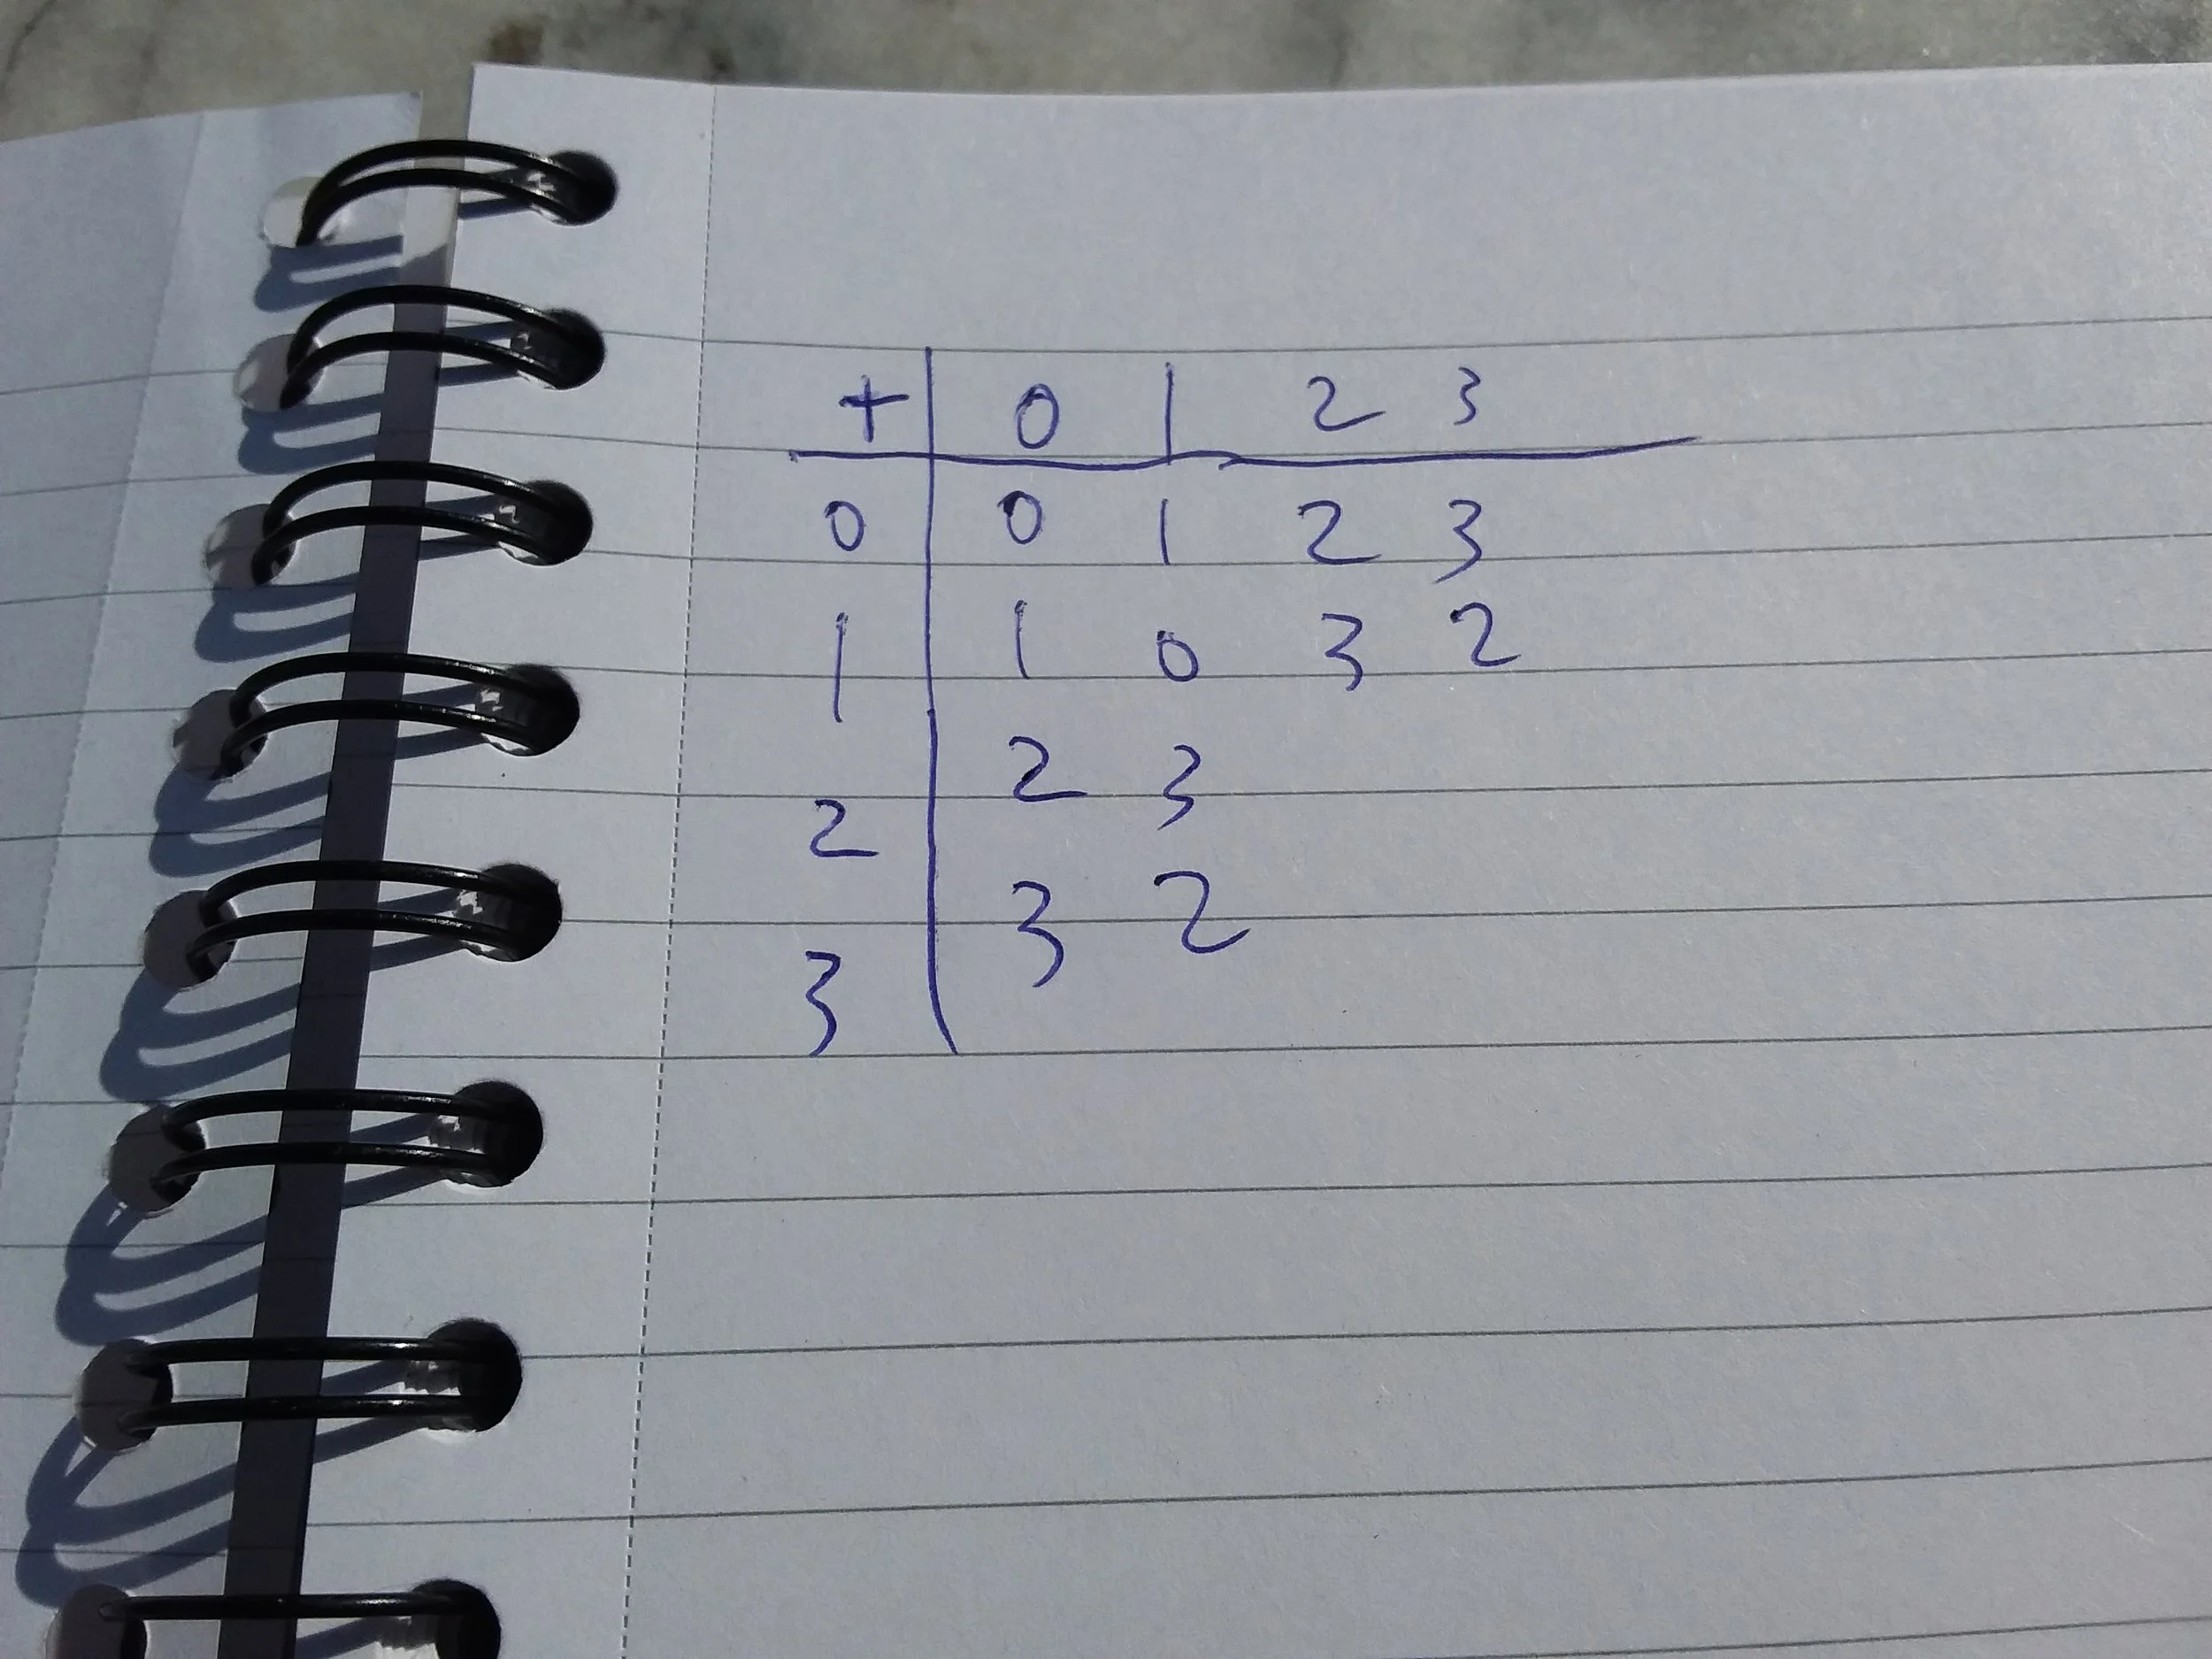 + 0 1 2 3
0 0 1 2 3
1 1 0 3 2
2 2 3
3 3 2